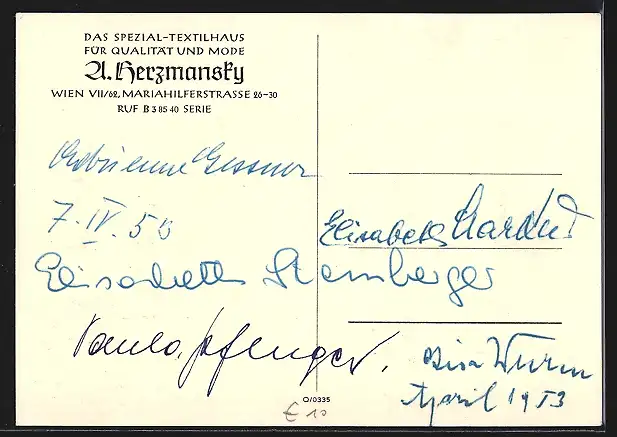 DAS SPEZIAL-TEXTILHAUS
FÜR QUALITÄT UND MODE
A. Herzmansky
WIEN VII/62, MARIAHILFERSTRASSE 26-30
RUF B 3 85 40 SERIE
Adrienne Gessner
7. IV. 53
Elisabeth Markus
Elisabeth Stemberger
Paula Pfluger.
Wurm
April 1953
O/0335
€ 10